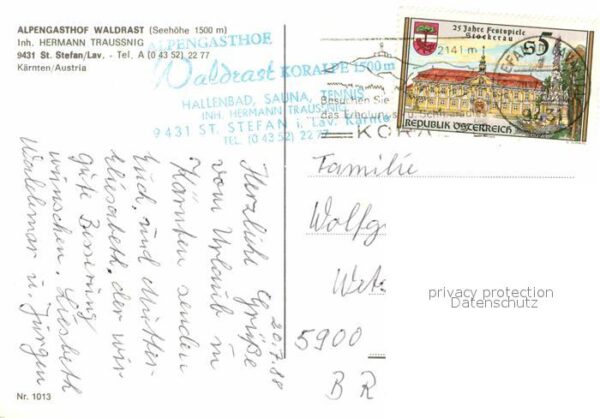 ALPENGASTHOF WALDRAST (Seehöhe 1500 m)
Inh. HERMANN TRAUSSNIG
9431 St. Stefan/Lav. - Tel. A (0 43 52) 22 77
Kärnten/Austria
ALPENGASTHOF
Waldrast KORALPE 1500m
HALLENBAD, SAUNA, TENNIS
INH. HERMANN TRAUSSNIG
9431 ST. STEFAN i. Lav. Kärnten
TEL. (0 43 52) 22 77
25 Jahre Festspiele
Stockerau
S5
2141 m
Besuchen Sie
das Erholungs
KORA
REPUBLIK ÖSTERREICH
20.7.88
Herzliche Grüße
vom Urlaub in
Kärnten senden
Euch, und Mutter
Elisabeth, der wir
gute Besserung
wünschen. Liesbeth
Waldemar u. Jürgen
Familie
Wolfg
Wet
5900
BR
privacy protection
Datenschutz
Nr. 1013